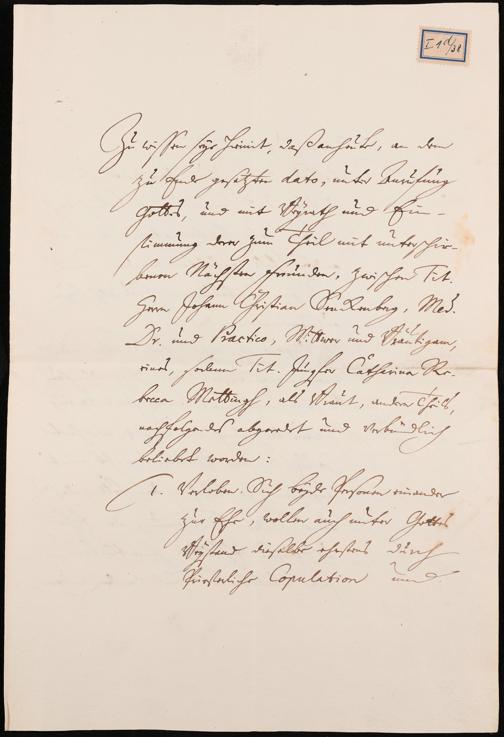 I 1 d/38
Zu wissen seye hiemit, daß anheute, an dem
zu Ende gesetzten dato, unter Anrufung
Gottes, und mit Beyrath und Ein-
stimmung derer zum Theil mit unterschrie-
benen Nächsten Freunden, zwischen Tit.
Herrn Johann Christian Senckenberg, Med.
Dr. und Practico, Wittwer und Bräutigam,
eines, sodann Tit. Jungfer Catharina Re-
becca Mettingh, als Braut, andern Theils,
nachfolgendes abgeredet und verbündlich
beliebet worden:
1. Verloben Sich beyde Personen einander
zur Ehe, wollen auch unter Gottes
Beystand dieselbe ehestens durch
Priesterliche Copulation und